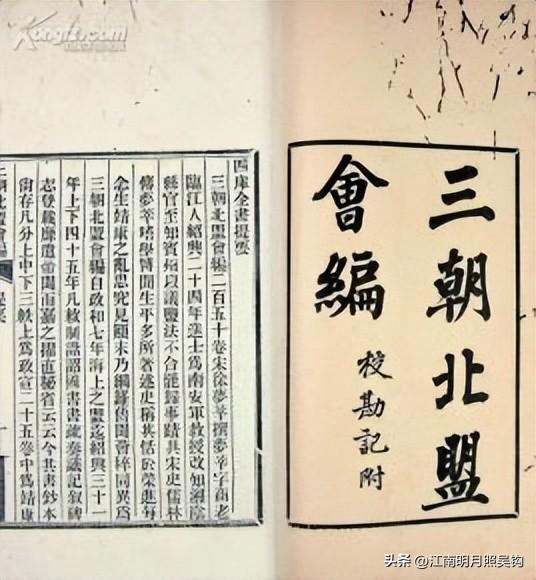 三朝北盟
會編
校勘記附
四庫全書提要
三朝北盟會編二百五十卷宋徐夢莘撰夢莘字商老
臨江人紹興二十四年進士爲南安軍教授改知湘陰
縣官至知賓州以議鹽法不合罷歸事蹟具宋史儒林
傳夢莘嗜學博聞生平多所著述史稱其恬於榮進每
念生靖康之亂思究見顚末乃網羅舊聞會稡同異爲
三朝北盟會編自政和七年海上之盟迄紹興三十一
年上下四十五年凡敕制誥詔國書書疏奏議記叙碑
志登載靡遺帝聞而嘉之擢直秘省云云今其書鈔本
尚存凡分上中下三帙上爲政宣二十五卷中爲靖康
Kongfz.com
头条 @江南明月照吴钩